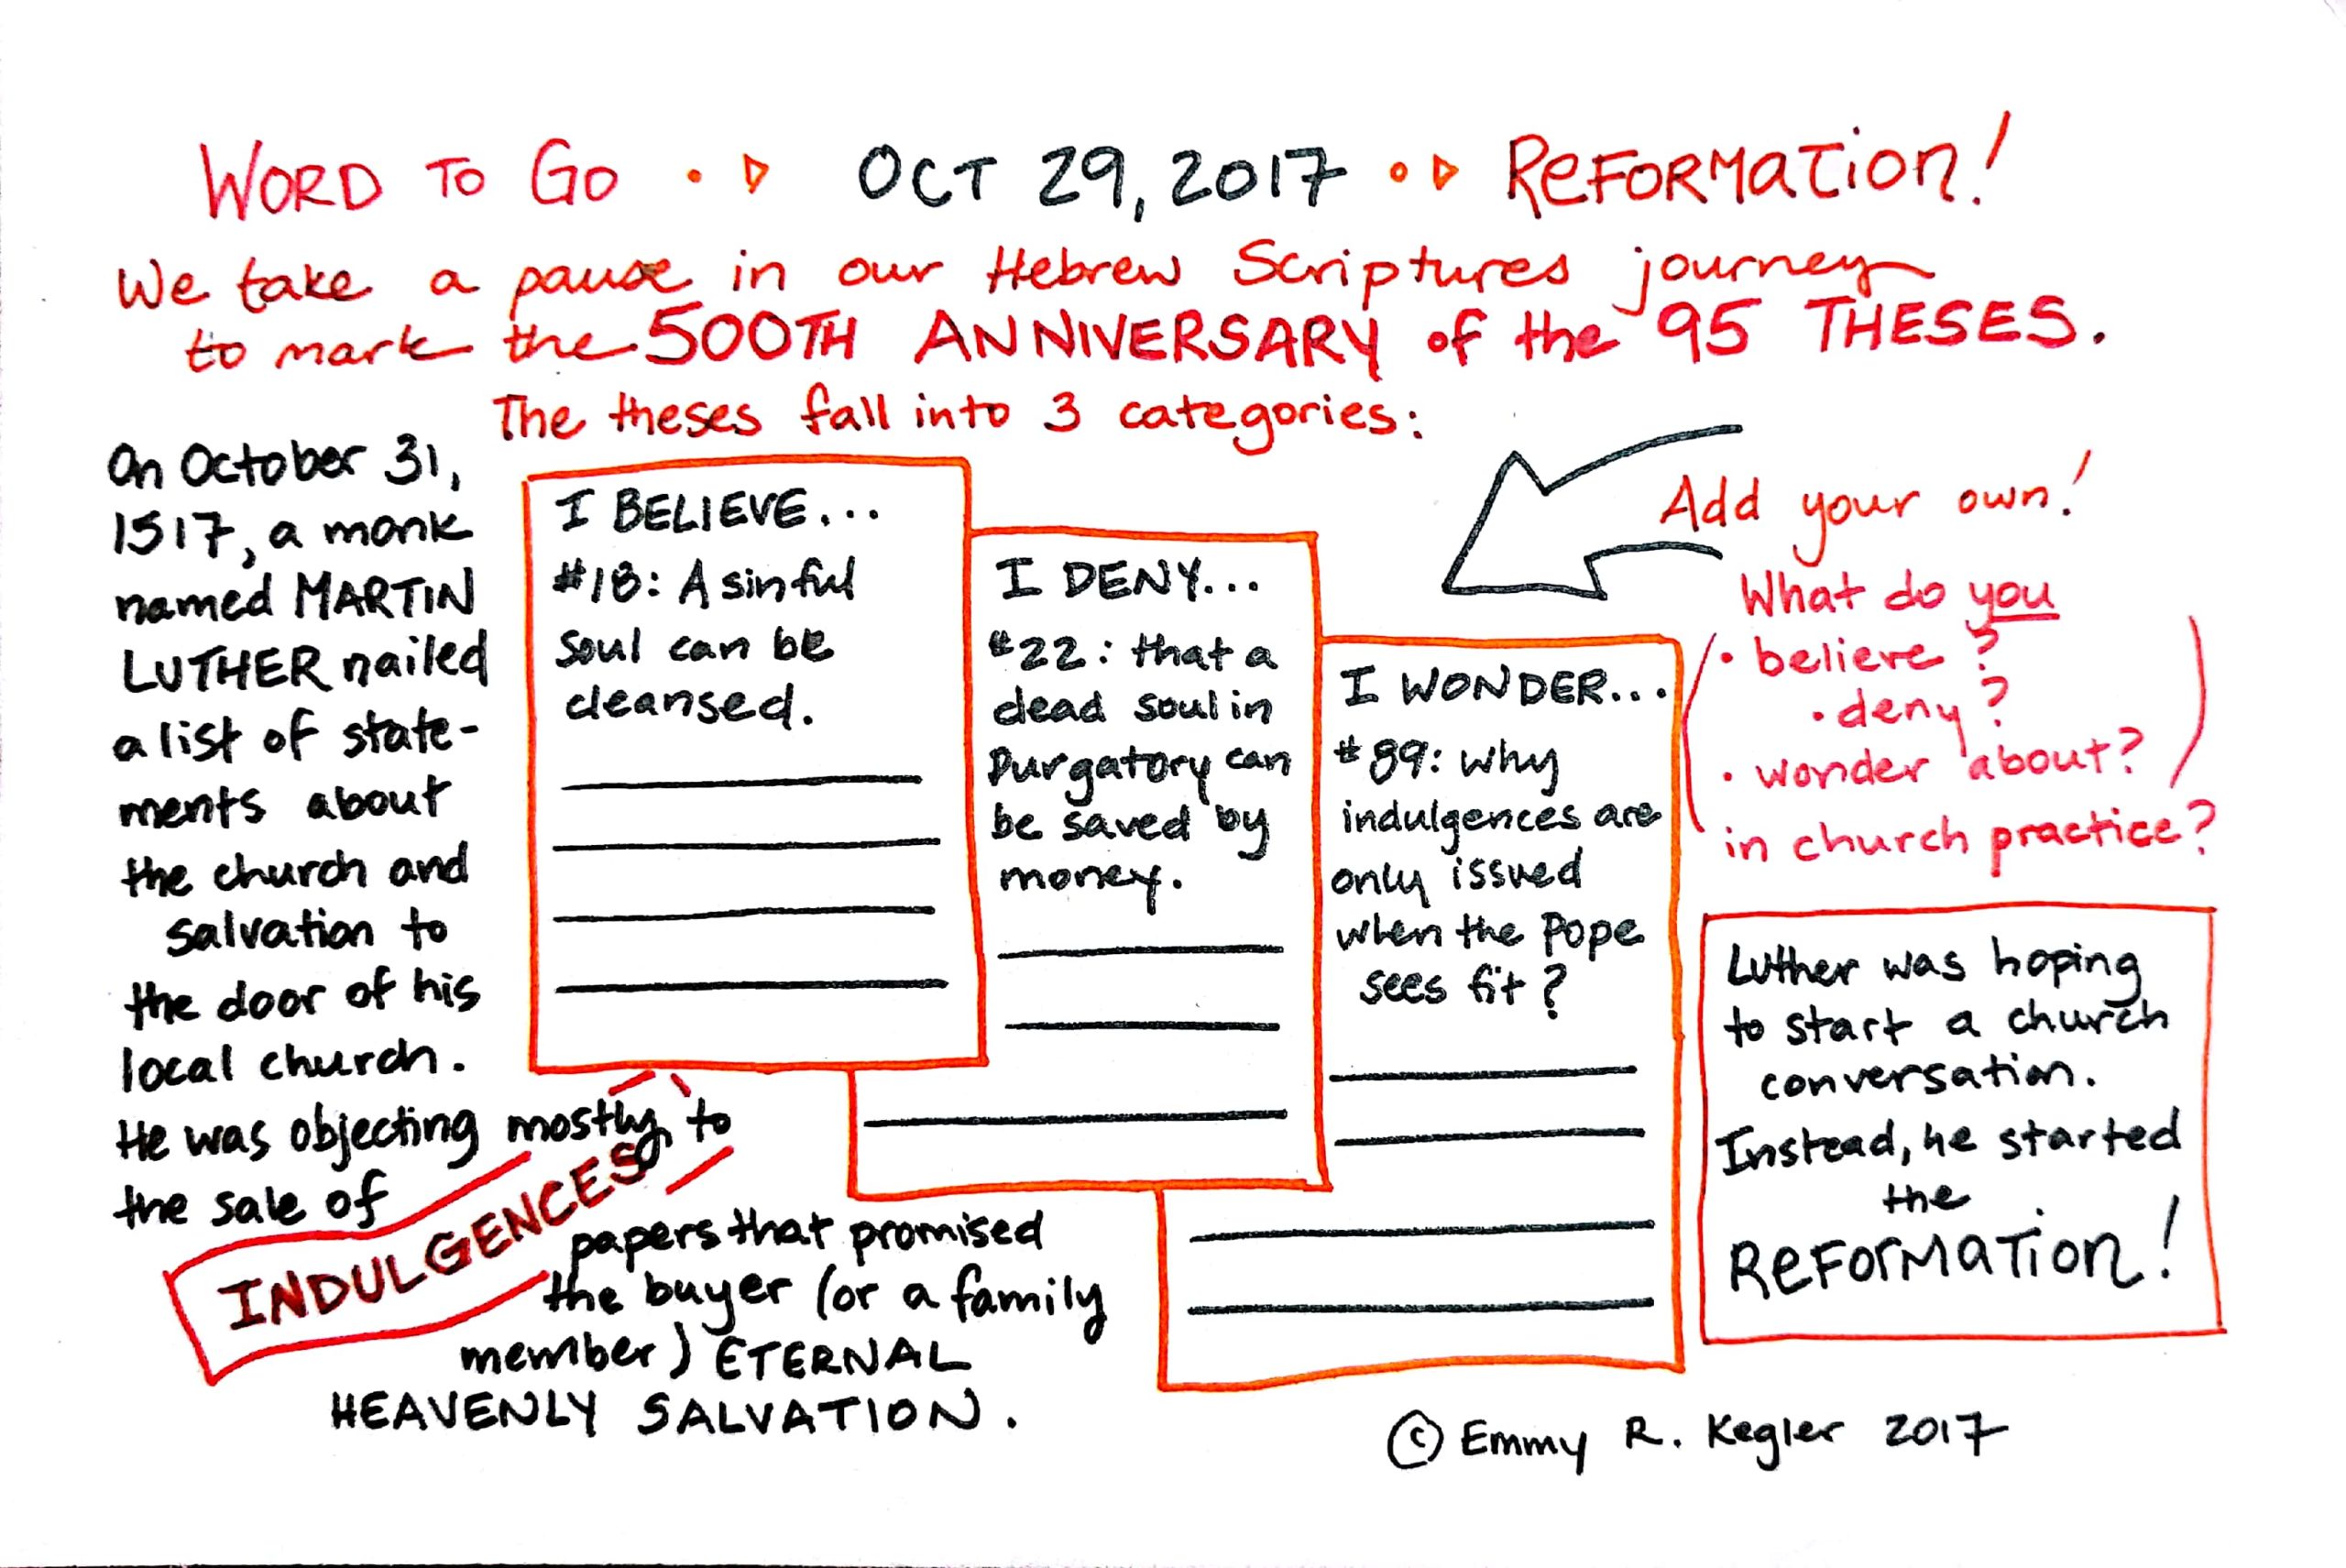 WORD TO GO • ▷ OCT 29, 2017 • ▷ REFORMATION!
We take a pause in our Hebrew Scriptures journey
to mark the 500TH ANNIVERSARY of the 95 THESES.
The theses fall into 3 categories:
On October 31,
1517, a monk
named MARTIN
LUTHER nailed
a list of state-
ments about
the church and
salvation to
the door of his
local church.
He was objecting mostly to
the sale of
INDULGENCES
papers that promised
the buyer (or a family
member) ETERNAL
HEAVENLY SALVATION.
I BELIEVE...
#18: A sinful
soul can be
cleansed.
I DENY...
#22: that a
dead soul in
Purgatory can
be saved by
money.
I WONDER...
#89: why
indulgences are
only issued
when the Pope
sees fit?
Add your own!
What do you
• believe?
• deny?
• wonder about?
in church practice?
Luther was hoping
to start a church
conversation.
Instead, he started
the
REFORMATION!
© Emmy R. Kegler 2017